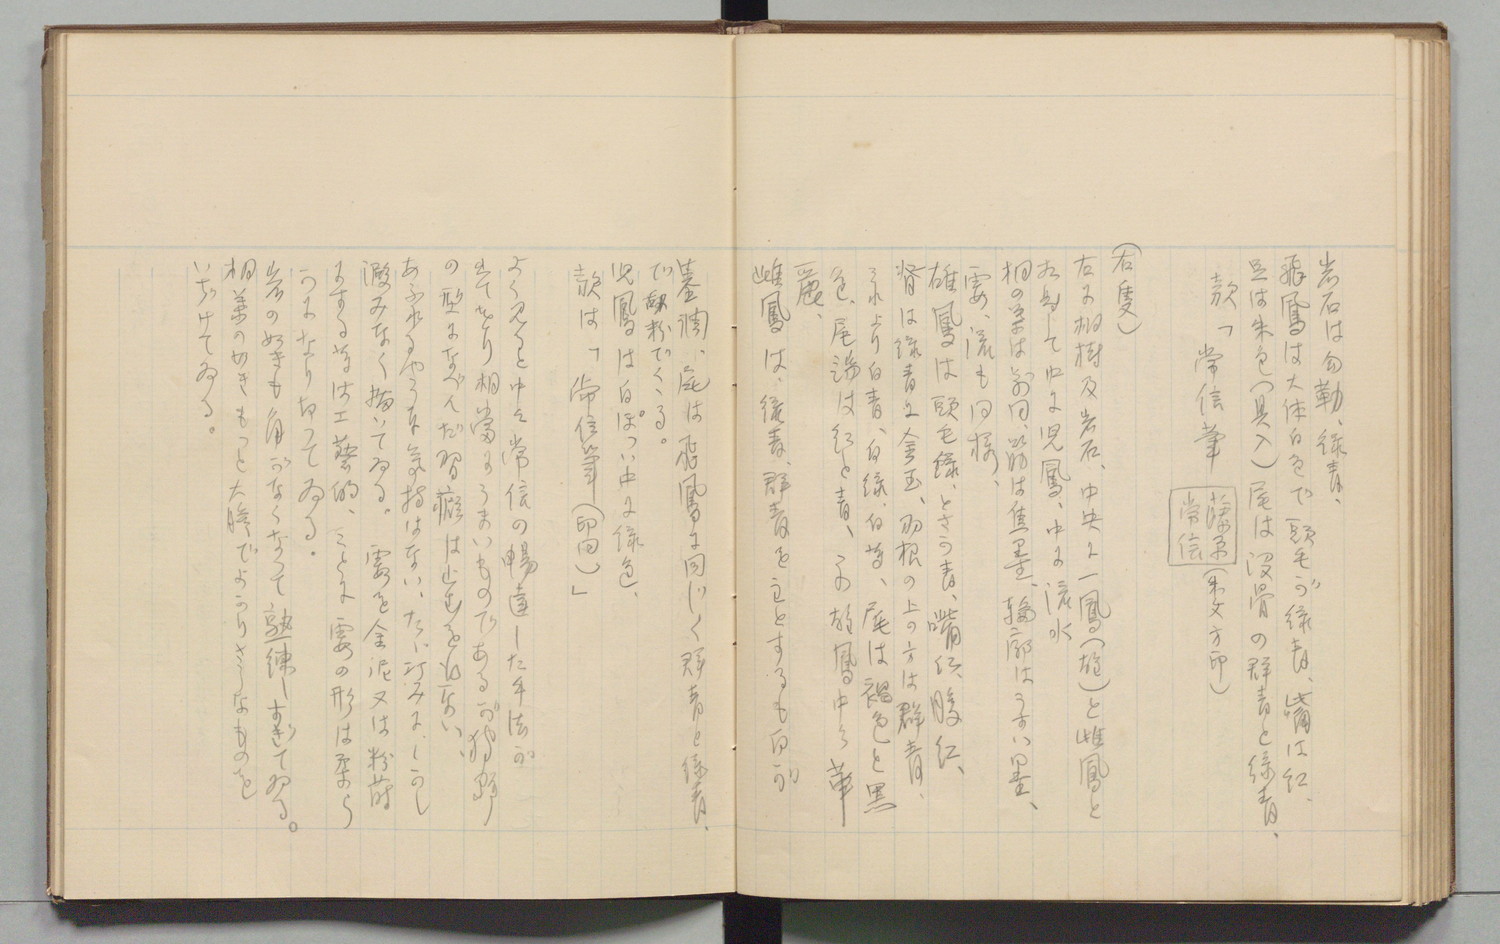 岩石は勾勒、緑青、
飛鳳は大体白色で頭毛が緑青、嘴は紅、
足は朱色(具入)尾は没骨の群青と緑青、
款「常信筆 藤原常信(朱文方印)
(右隻)
左に桐樹及岩石、中央に一鳳(雄)と雌鳳と
相対して中に児鳳、中に流水
桐の葉は前同、筋は焦墨、輪廓はうすい墨、
雲、流も同様、
雄鳳は頭毛緑、とさか青、嘴紅、腹紅、
背は緑青に金玉、羽根の上の方は群青、
それより白青、白緑、白等、尾は褐色と黒
色、尾端は紅と青、この雄鳳中々華
麗、
雌鳳は、緑青、群青を主とするも白が
基調、尾は飛鳳に同じく群青と緑青、
で胡粉でくくる。
児鳳は白ぽい中に緑色、
款は「常信筆(印同)」
よく見ると中々常信の暢達した手法が
出てをり相当にうまいものであるが狩野
の型になづんだ習癖は止むを得ない、
あふれるやうな気持はない、たゞ巧みにしかし
澱みなく描いてゐる。雲を金泥又は粉蒔
にする等は工藝的、ことに雲の形は柔ら
かになり切つてゐる。
岩の如きも角がなくなつて熟練しすぎてゐる。
桐葉の如きもつと大膽でよかりさうなものを
いぢけてゐる。